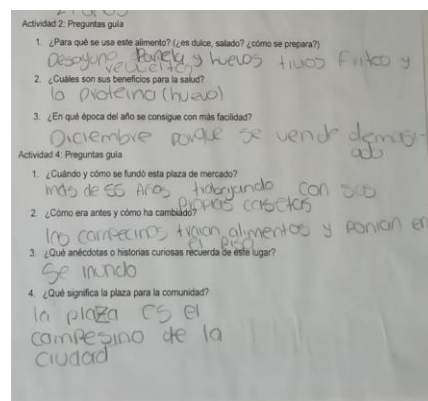 Actividad 2: Preguntas guía
1. ¿Para qué se usa este alimento? (¿es dulce, salado? ¿cómo se prepara?)
Desayuno Panela y huevos tivos Fritos y
revuelitos
2. ¿Cuáles son sus beneficios para la salud?
la proteino (huevo)
3. ¿En qué época del año se consigue con más facilidad?
Diciembre porque se vende demasi-
ado
Actividad 4: Preguntas guía
1. ¿Cuándo y cómo se fundó esta plaza de mercado?
más de 55 Años trabajando con sus
propias casetas
2. ¿Cómo era antes y cómo ha cambiado?
los campecinos traian alimentos y ponian en
el piso
3. ¿Qué anécdotas o historias curiosas recuerda de este lugar?
Se inundo
4. ¿Qué significa la plaza para la comunidad?
la plaza es el
campesino de la
ciudad